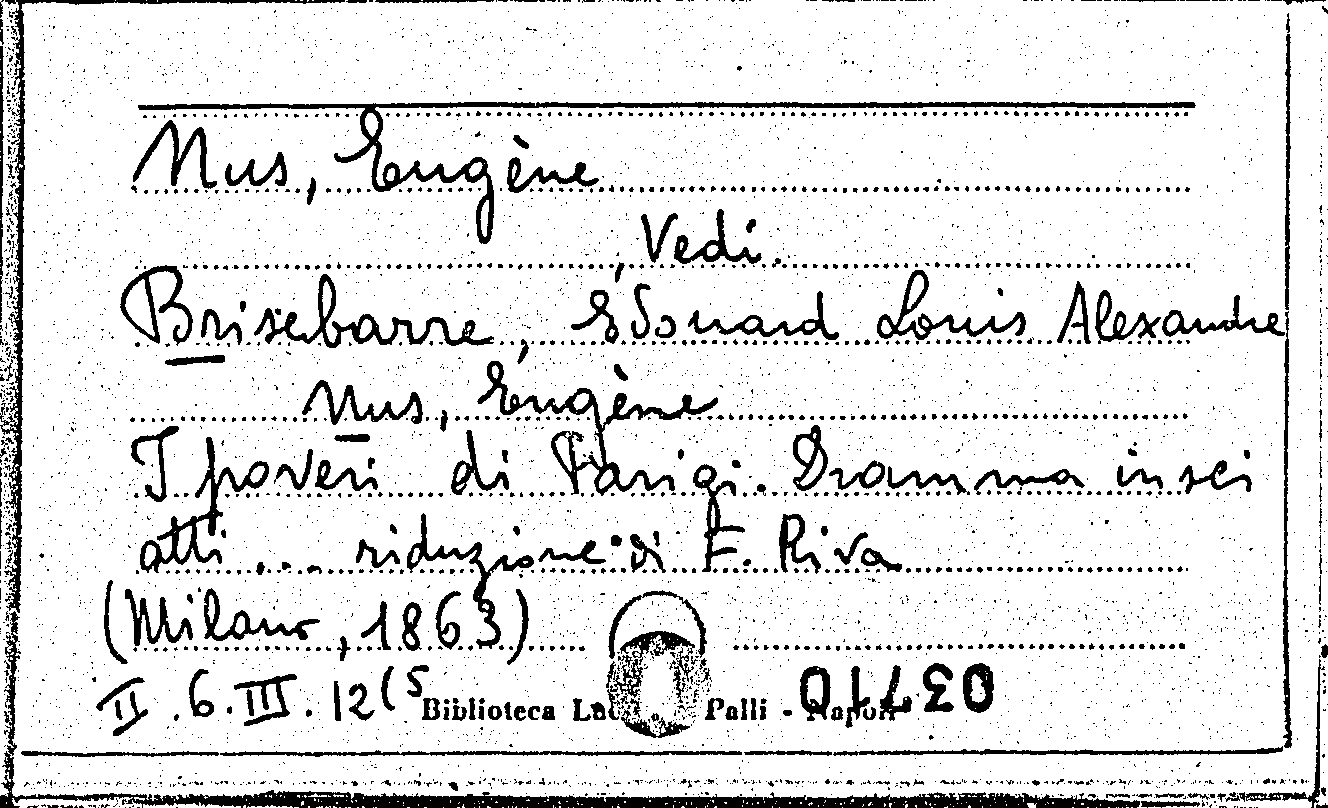 Nus, Eugène
, Vedi.
Brisebarre, Edouard Louis Alexandre
Nus, Eugène
I poveri di Parigi. Dramma in sei
atti ... riduzione di F. Riva
(Milano, 1863)
II. 6. III. 12(5
Biblioteca Palli - Napoli
03710